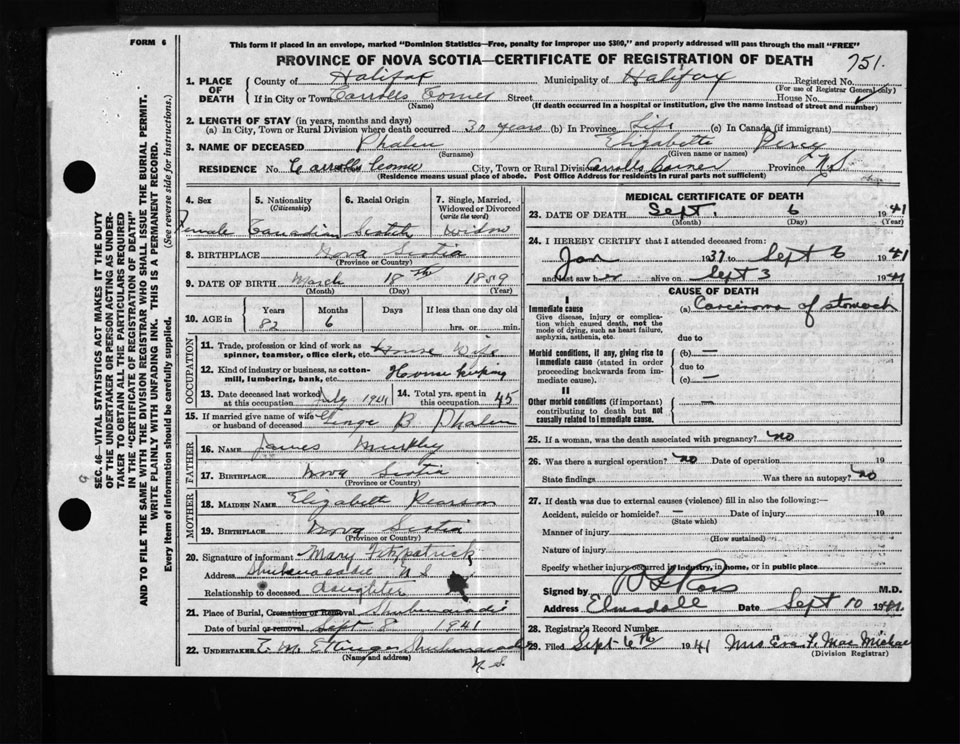 FORM 6
This form if placed in an envelope, marked "Dominion Statistics—Free, penalty for improper use $300," and properly addressed will pass through the mail "FREE"
PROVINCE OF NOVA SCOTIA—CERTIFICATE OF REGISTRATION OF DEATH
751.
1. PLACE OF DEATH
County of Halifax Municipality of Halifax Registered No.
(For use of Registrar General only)
If in City or Town Carrolls Corner Street House No.
(Name) (If death occurred in a hospital or institution, give the name instead of street and number)
2. LENGTH OF STAY (in years, months and days)
(a) In City, Town or Rural Division where death occurred 30 years (b) In Province Life (c) In Canada (if immigrant)
3. NAME OF DECEASED Phalen Elizabeth Percy
(Surname) (Given name or names)
RESIDENCE No. Carrolls Corner City, Town or Rural Division Carrolls Corner Province N.S.
(Residence means usual place of abode. Post Office Address for residents in rural parts not sufficient)
4. Sex
Female
5. Nationality
(Citizenship)
Canadian
6. Racial Origin
Scotch
7. Single, Married, Widowed or Divorced
(write the word)
Widow
8. BIRTHPLACE Nova Scotia
(Province or Country)
9. DATE OF BIRTH March 18th 1859
(Month) (Day) (Year)
10. AGE in Years Months Days If less than one day old
82 6 hrs. or min.
OCCUPATION
11. Trade, profession or kind of work as spinner, teamster, office clerk, etc. House Wife
12. Kind of industry or business, as cotton-mill, lumbering, bank, etc. House keeping
13. Date deceased last worked at this occupation July 1941
14. Total yrs. spent in this occupation 45
15. If married give name of wife or husband of deceased George B Phalen
FATHER
16. NAME James
17. BIRTHPLACE Nova Scotia
(Province or Country)
MOTHER
18. MAIDEN NAME Elizabeth Pearson
19. BIRTHPLACE Nova Scotia
(Province or Country)
20. Signature of informant Mary Fitzpatrick
Address Shubenacadie N S
Relationship to deceased daughter
21. Place of Burial, Cremation or Removal Shubenacadie
Date of burial or removal Sept 8 1941
22. UNDERTAKER Shubenacadie
(Name and address) N. S.
MEDICAL CERTIFICATE OF DEATH
23. DATE OF DEATH Sept. 6 1941
(Month) (Day) (Year)
24. I HEREBY CERTIFY that I attended deceased from:
Jan 1937 to Sept 6 1941
and last saw her alive on Sept 3 1941
CAUSE OF DEATH
I
Immediate cause
Give disease, injury or complication which caused death, not the mode of dying, such as heart failure, asphyxia, asthenia, etc.
(a) Carcinoma of stomach
due to
Morbid conditions, if any, giving rise to immediate cause (stated in order proceeding backwards from immediate cause).
(b) —
due to
(c) —
II
Other morbid conditions (if important) contributing to death but not causally related to immediate cause.
—
25. If a woman, was the death associated with pregnancy? no
26. Was there a surgical operation? no Date of operation 19
State findings Was there an autopsy? no
27. If death was due to external causes (violence) fill in also the following:—
Accident, suicide or homicide? — Date of injury 19
(State which)
Manner of injury
(How sustained)
Nature of injury
Specify whether injury occurred in industry, in home, or in public place
Signed by M.D.
Address Elmsdale Date Sept 10 1941
28. Registrar's Record Number
29. Filed Sept 6th 1941 Mrs Eva F. MacMichael
(Division Registrar)
SEC. 46—VITAL STATISTICS ACT MAKES IT THE DUTY
OF THE UNDERTAKER OR PERSON ACTING AS UNDER-
TAKER TO OBTAIN ALL THE PARTICULARS REQUIRED
IN THE "CERTIFICATE OF REGISTRATION OF DEATH"
AND TO FILE THE SAME WITH THE DIVISION REGISTRAR WHO SHALL ISSUE THE BURIAL PERMIT.
WRITE PLAINLY WITH UNFADING INK. THIS IS A PERMANENT RECORD.
Every item of information should be carefully supplied. (See reverse side for instructions.)